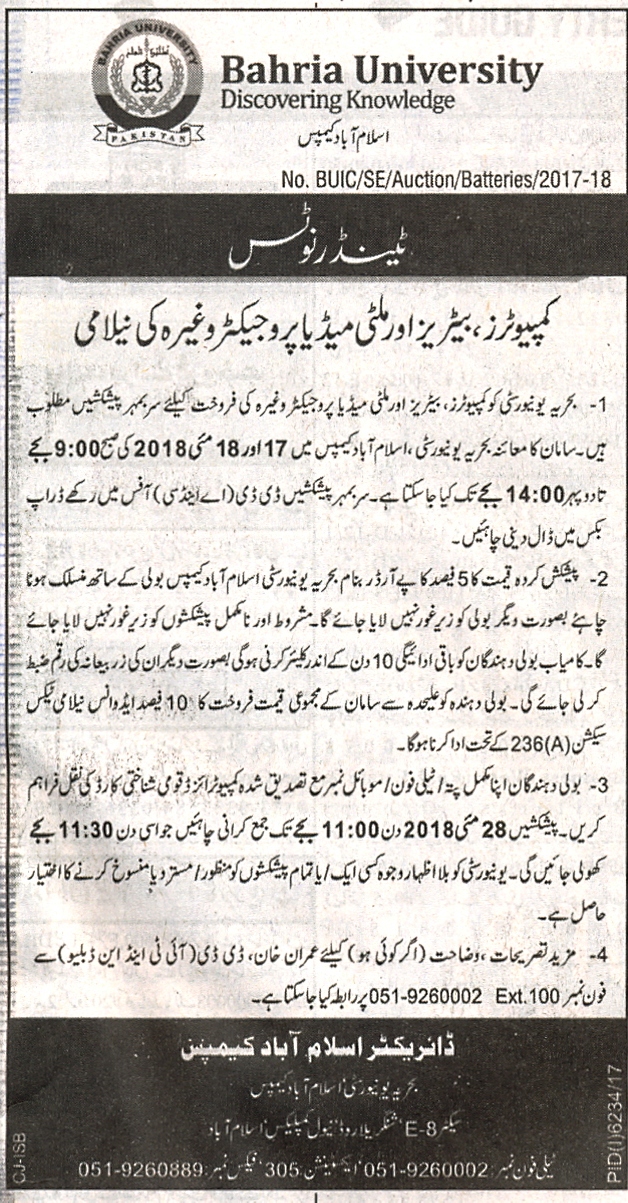 BAHRIA UNIVERSITY
PAKISTAN
Bahria University
Discovering Knowledge
اسلام آباد کیمپس
No. BUIC/SE/Auction/Batteries/2017-18
ٹینڈر نوٹس
کمپیوٹرز، بیٹریز اور ملٹی میڈیا پروجیکٹر وغیرہ کی نیلامی
1- بحریہ یونیورسٹی کو کمپیوٹرز، بیٹریز اور ملٹی میڈیا پروجیکٹر وغیرہ کی فروخت کیلئے سربمہر پیشکشیں مطلوب
ہیں۔ سامان کا معائنہ بحریہ یونیورسٹی، اسلام آباد کیمپس میں 17 اور 18 مئی 2018 کی صبح 9:00 بجے
تا دوپہر 14:00 بجے تک کیا جا سکتا ہے۔ سربمہر پیشکشیں ڈی ڈی (اے اینڈ سی) آفس میں رکھے ڈراپ
بکس میں ڈال دینی چاہئیں۔
2- پیشکش کردہ قیمت کا 5 فیصد کا پے آرڈر بنام بحریہ یونیورسٹی اسلام آباد کیمپس بولی کے ساتھ منسلک ہونا
چاہئے بصورت دیگر بولی کو زیر غور نہیں لایا جائے گا۔ مشروط اور نامکمل پیشکشوں کو زیر غور نہیں لایا جائے
گا۔ کامیاب بولی دہندگان کو باقی ادائیگی 10 دن کے اندر کلیئر کرنی ہوگی بصورت دیگر ان کی زر بیعانہ کی رقم ضبط
کر لی جائے گی۔ بولی دہندہ کو علیحدہ سے سامان کے مجموعی قیمت فروخت کا 10 فیصد ایڈوانس نیلامی ٹیکس
سیکشن 236(A) کے تحت ادا کرنا ہوگا۔
3- بولی دہندگان اپنا مکمل پتہ/ٹیلی فون/موبائل نمبر مع تصدیق شدہ کمپیوٹرائزڈ قومی شناختی کارڈ کی نقل فراہم
کریں۔ پیشکشیں 28 مئی 2018 دن 11:00 بجے تک جمع کرانی چاہئیں جو اسی دن 11:30 بجے
کھولی جائیں گی۔ یونیورسٹی کو بلا اظہار وجوہ کسی ایک/یا تمام پیشکشوں کو منظور/مسترد یا منسوخ کرنے کا اختیار
حاصل ہے۔
4- مزید تصریحات، وضاحت (اگر کوئی ہو) کیلئے عمران خان، ڈی ڈی (آئی ٹی اینڈ این ڈبلیو) سے
فون نمبر 051-9260002 Ext.100 پر رابطہ کیا جا سکتا ہے۔
ڈائریکٹر اسلام آباد کیمپس
بحریہ یونیورسٹی اسلام آباد کیمپس
سیکٹر E-8 شنگریلا روڈ نیول کمپلیکس اسلام آباد
ٹیلی فون نمبر: 051-9260002 ایکسٹینشن 305 فیکس نمبر: 051-9260889
CJ-ISB
PID(I)6234/17